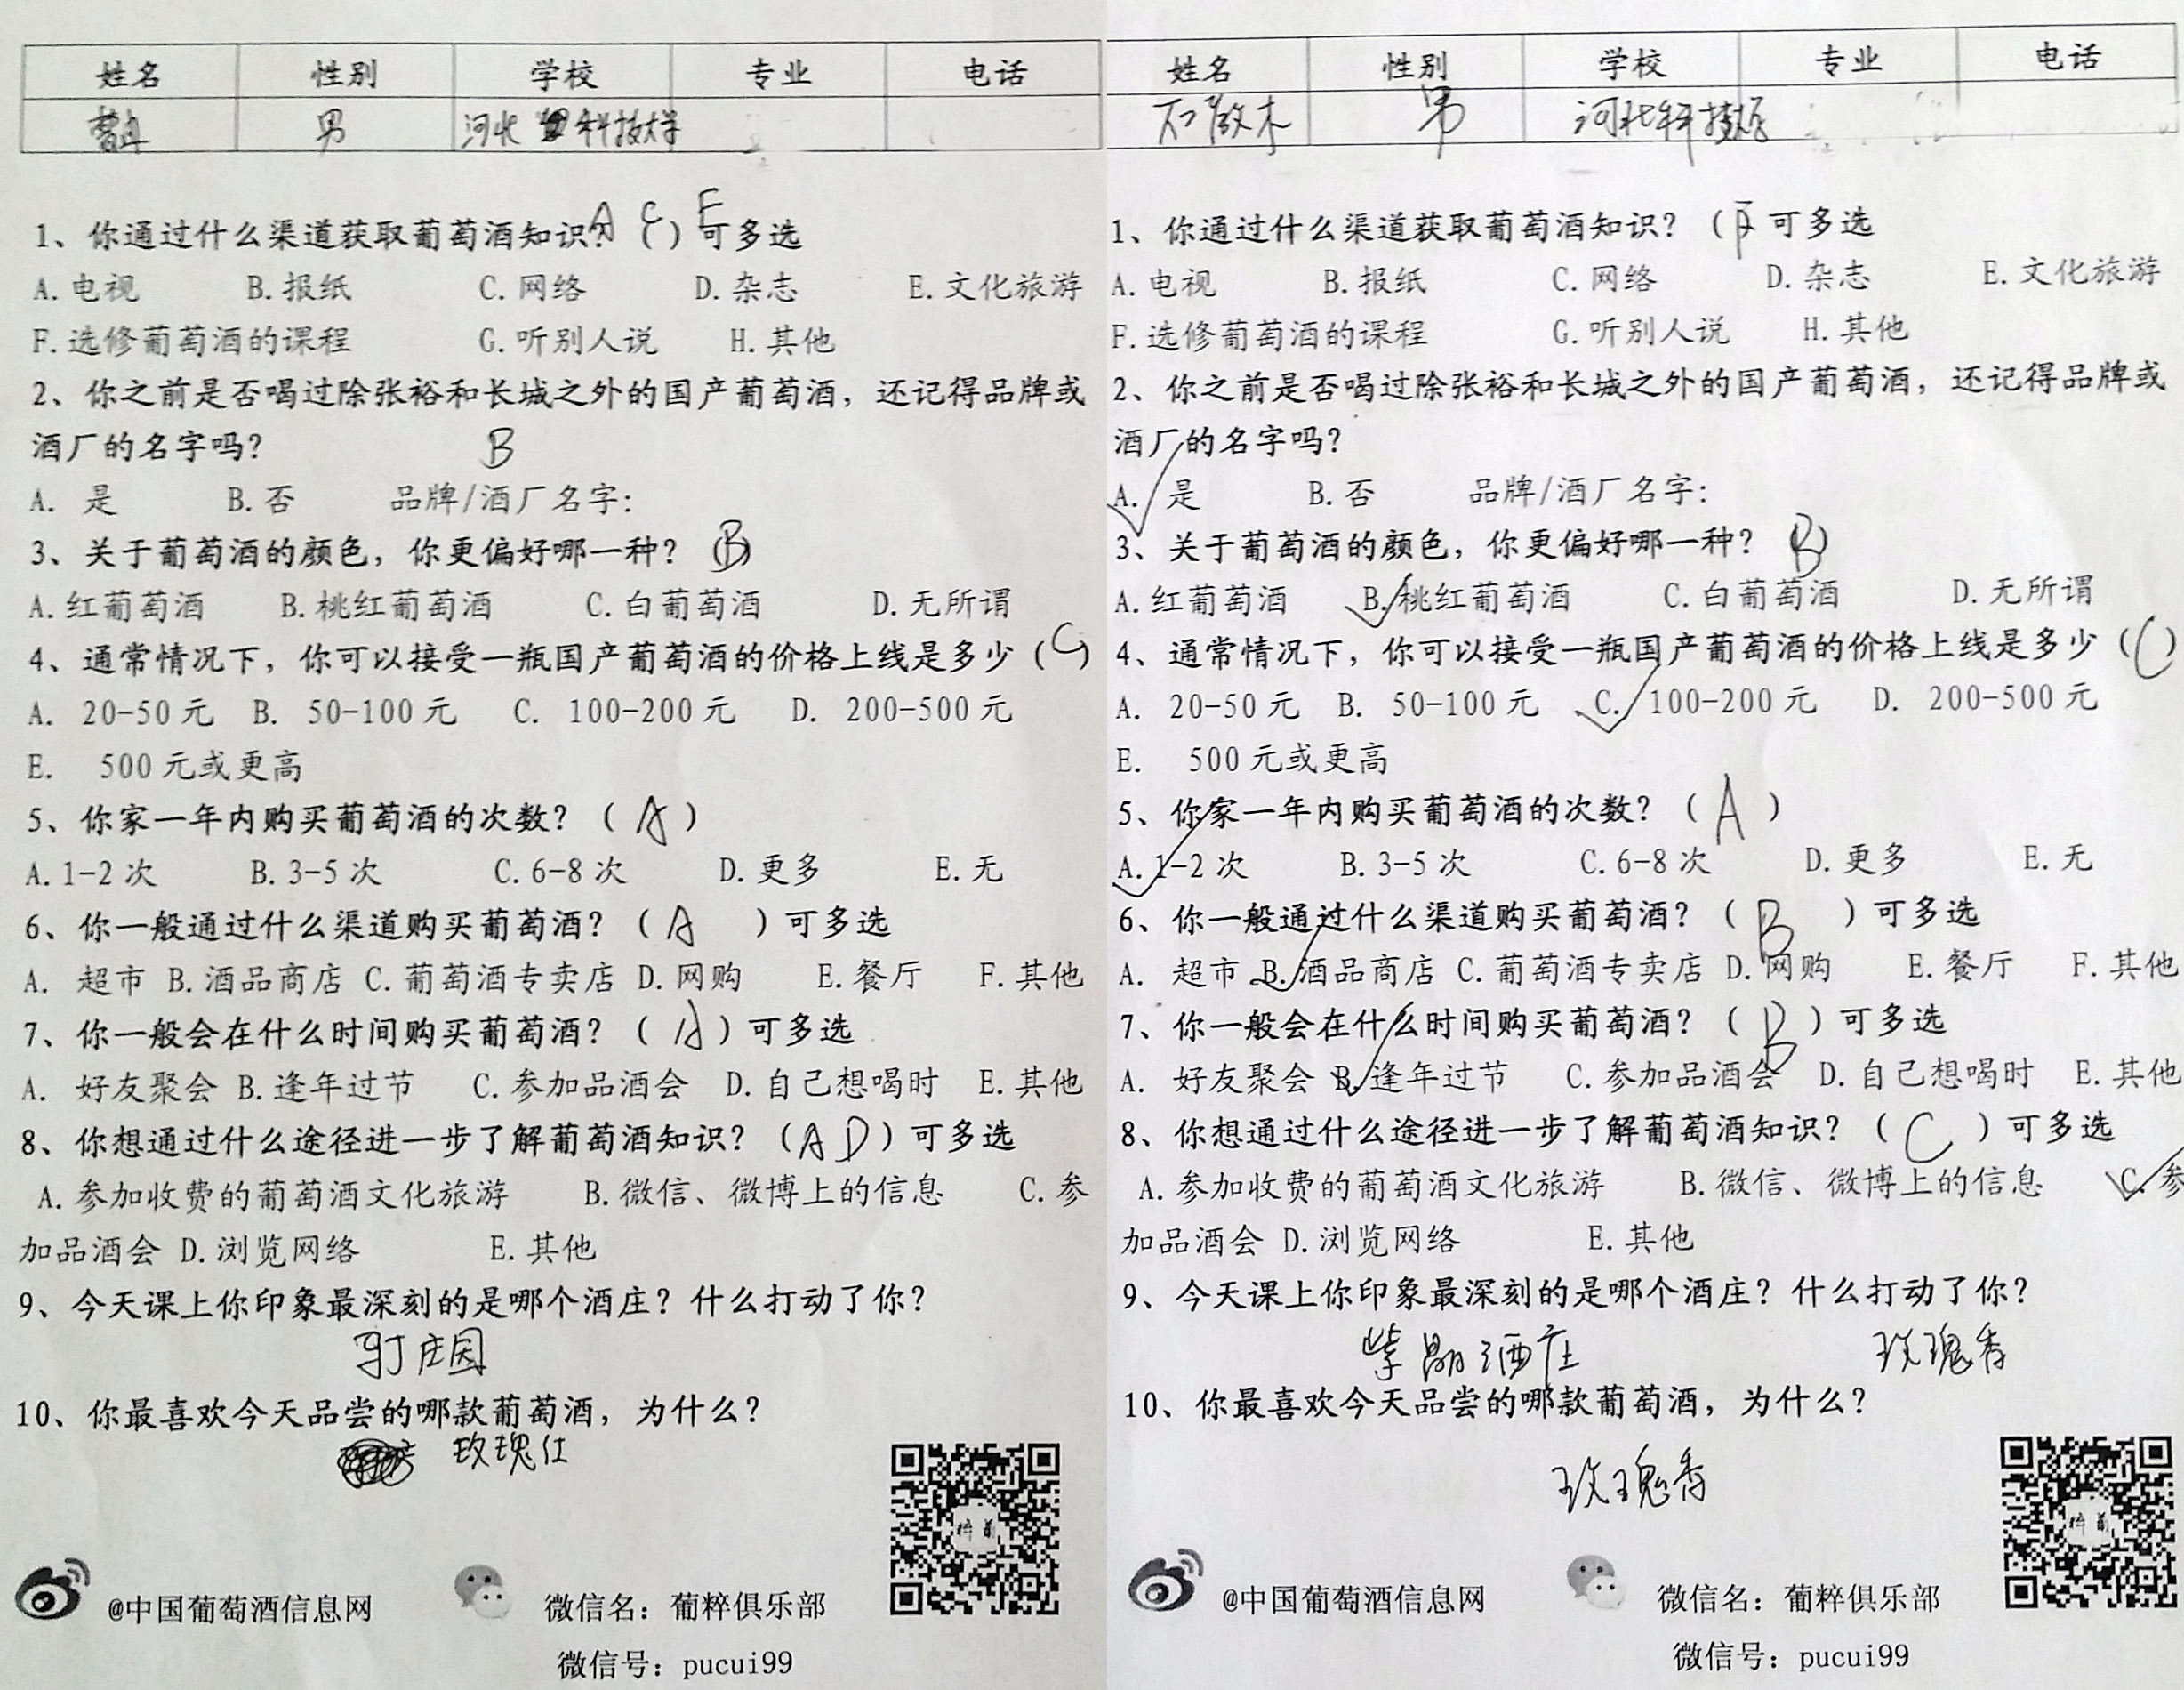 姓名 性别 学校 专业 电话
男 河北 科技大学
1、你通过什么渠道获取葡萄酒知识？（）可多选 A C F
A.电视 B.报纸 C.网络 D.杂志 E.文化旅游
F.选修葡萄酒的课程 G.听别人说 H.其他
2、你之前是否喝过除张裕和长城之外的国产葡萄酒，还记得品牌或
酒厂的名字吗？ B
A. 是 B.否 品牌/酒厂名字：
3、关于葡萄酒的颜色，你更偏好哪一种？（B）
A.红葡萄酒 B.桃红葡萄酒 C.白葡萄酒 D.无所谓
4、通常情况下，你可以接受一瓶国产葡萄酒的价格上线是多少（C）
A. 20-50元 B. 50-100元 C. 100-200元 D. 200-500元
E. 500元或更高
5、你家一年内购买葡萄酒的次数？（A）
A.1-2次 B.3-5次 C.6-8次 D.更多 E.无
6、你一般通过什么渠道购买葡萄酒？（A）可多选
A. 超市 B.酒品商店 C.葡萄酒专卖店 D.网购 E.餐厅 F.其他
7、你一般会在什么时间购买葡萄酒？（A）可多选
A. 好友聚会 B.逢年过节 C.参加品酒会 D.自己想喝时 E.其他
8、你想通过什么途径进一步了解葡萄酒知识？（A D）可多选
A.参加收费的葡萄酒文化旅游 B.微信、微博上的信息 C.参
加品酒会 D.浏览网络 E.其他
9、今天课上你印象最深刻的是哪个酒庄？什么打动了你？
10、你最喜欢今天品尝的哪款葡萄酒，为什么？
玫瑰红
@中国葡萄酒信息网 微信名：葡粹俱乐部
微信号：pucui99
姓名 性别 学校 专业 电话
男 河北科技大学
1、你通过什么渠道获取葡萄酒知识？（F 可多选
A.电视 B.报纸 C.网络 D.杂志 E.文化旅游
F.选修葡萄酒的课程 G.听别人说 H.其他
2、你之前是否喝过除张裕和长城之外的国产葡萄酒，还记得品牌或
酒厂的名字吗？
A. 是 B.否 品牌/酒厂名字：
3、关于葡萄酒的颜色，你更偏好哪一种？（B）
A.红葡萄酒 B.桃红葡萄酒 C.白葡萄酒 D.无所谓
4、通常情况下，你可以接受一瓶国产葡萄酒的价格上线是多少（C）
A. 20-50元 B. 50-100元 C. 100-200元 D. 200-500元
E. 500元或更高
5、你家一年内购买葡萄酒的次数？（A）
A.1-2次 B.3-5次 C.6-8次 D.更多 E.无
6、你一般通过什么渠道购买葡萄酒？（B）可多选
A. 超市 B.酒品商店 C.葡萄酒专卖店 D.网购 E.餐厅 F.其他
7、你一般会在什么时间购买葡萄酒？（B）可多选
A. 好友聚会 B.逢年过节 C.参加品酒会 D.自己想喝时 E.其他
8、你想通过什么途径进一步了解葡萄酒知识？（C）可多选
A.参加收费的葡萄酒文化旅游 B.微信、微博上的信息 C.参
加品酒会 D.浏览网络 E.其他
9、今天课上你印象最深刻的是哪个酒庄？什么打动了你？
紫晶酒庄 玫瑰香
10、你最喜欢今天品尝的哪款葡萄酒，为什么？
玫瑰香
@中国葡萄酒信息网 微信名：葡粹俱乐部
微信号：pucui99